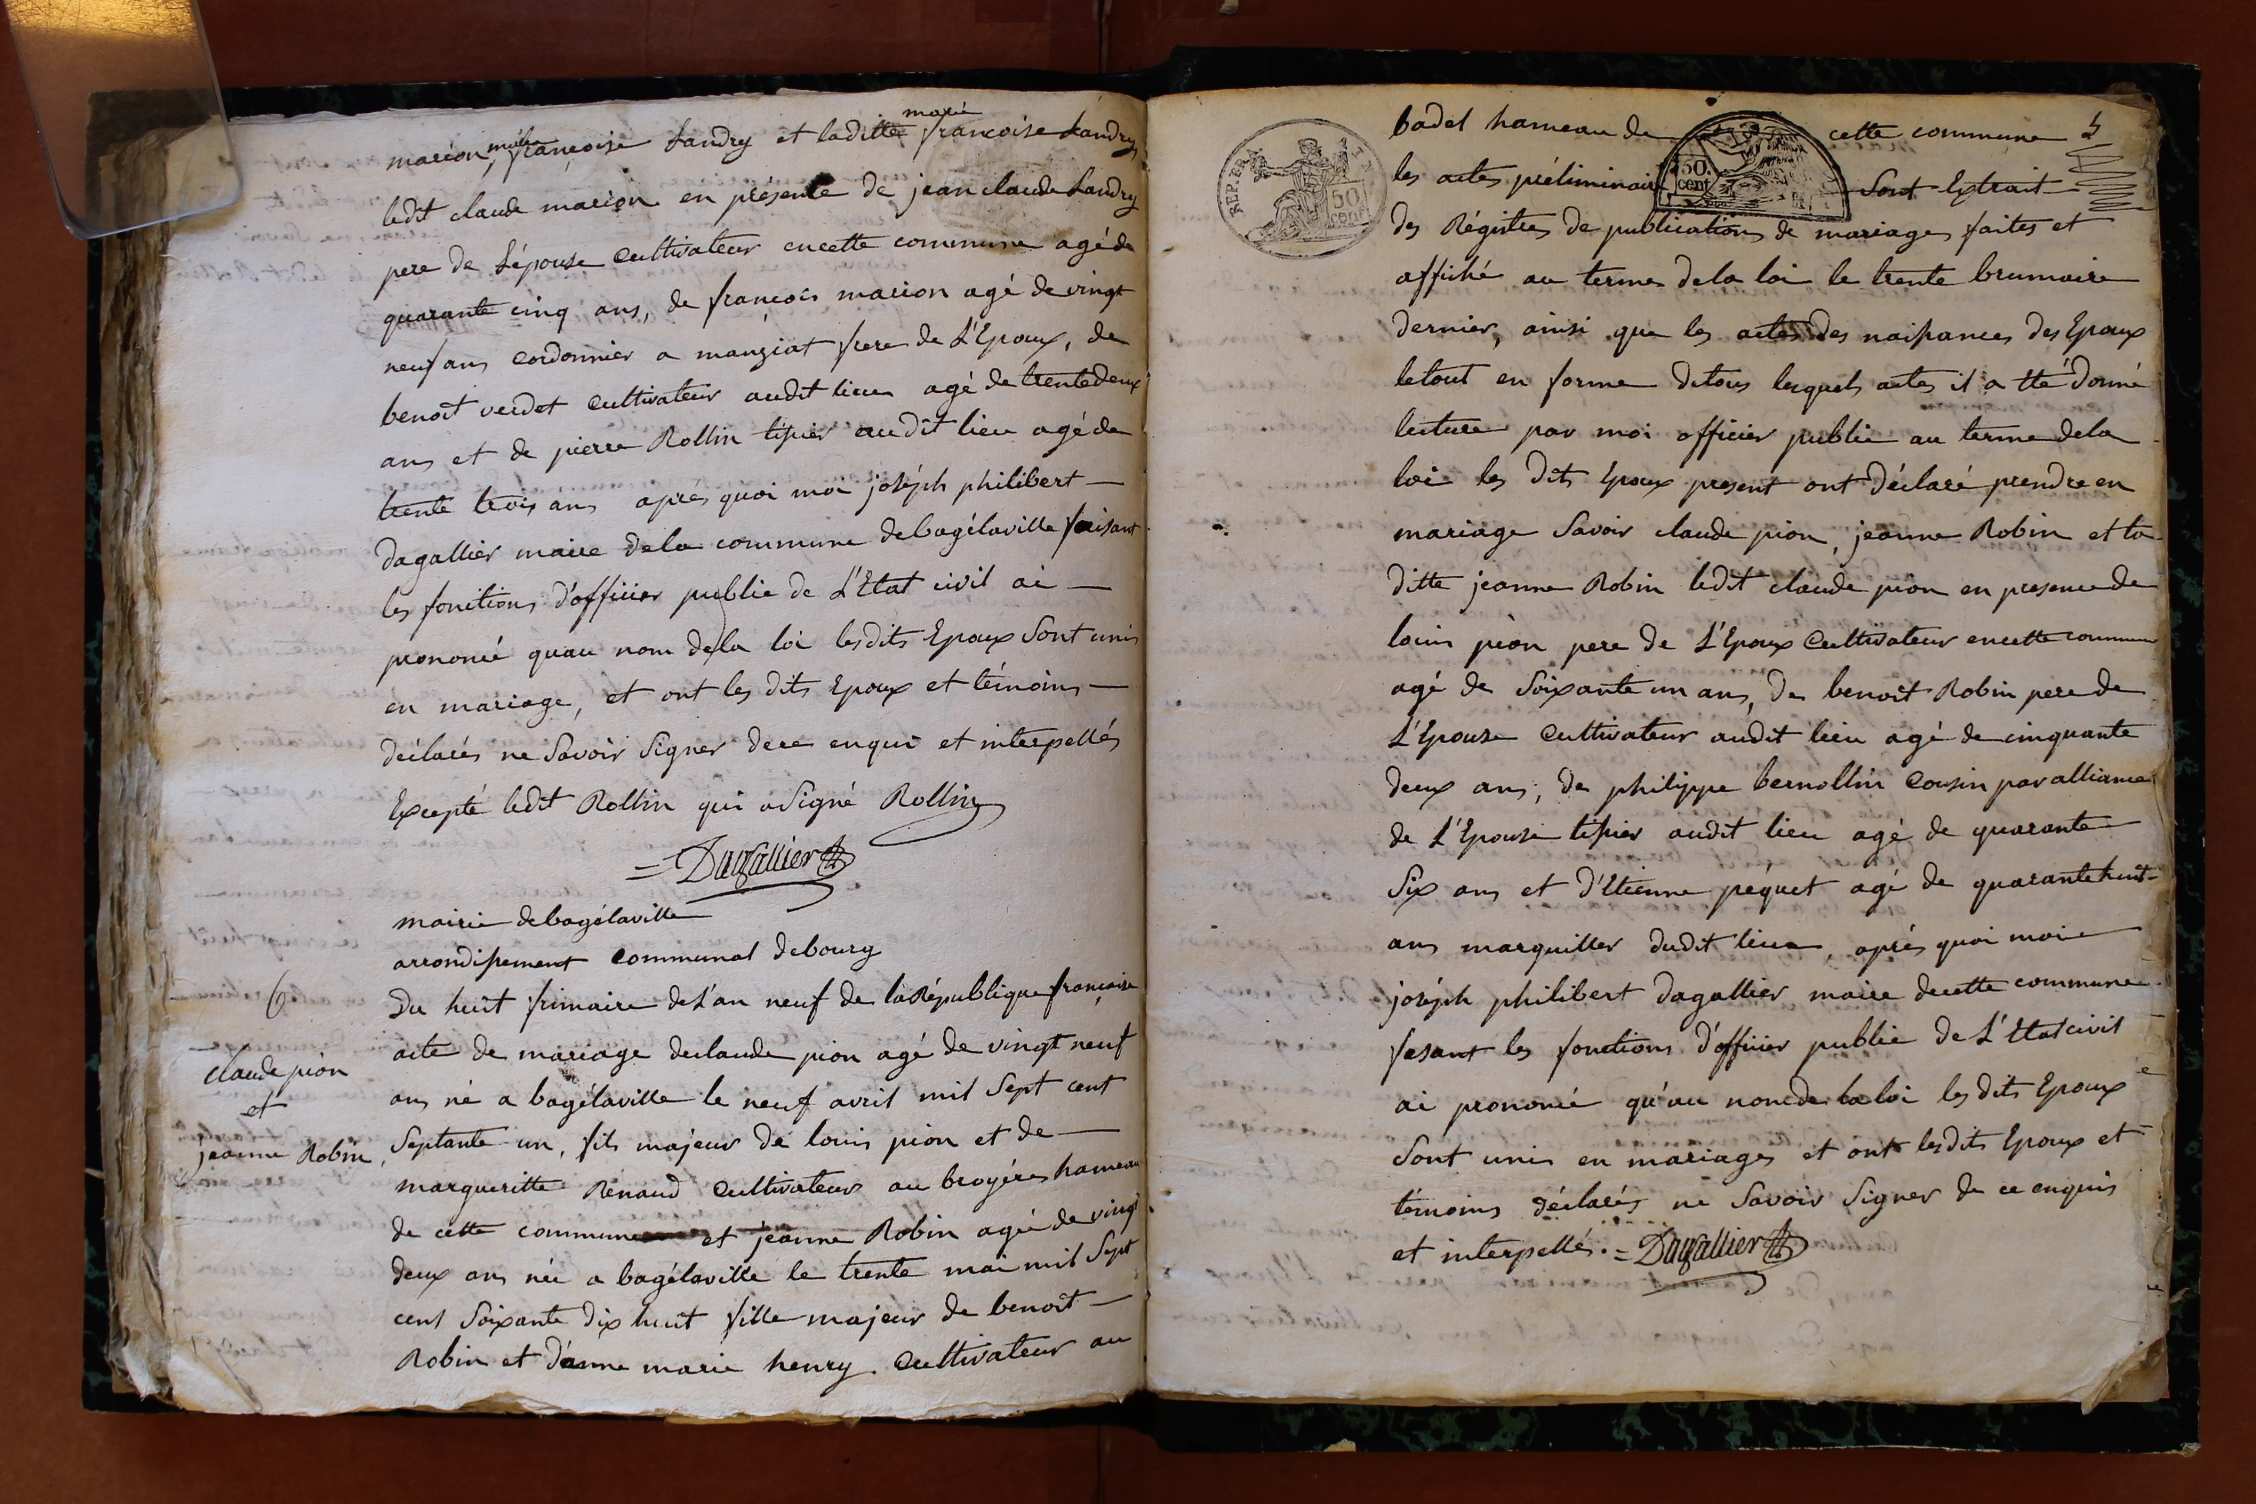 marion, marie françoise Landry et laditte marie françoise Landry
ledit claude marion en présente de jean claude Landry
pere de L'épouse cultivateur encette commune agé de
quarante cinq ans, de françois marion agé de vingt
neuf ans cordonnier a manziat frere de L'Epoux, de
benoit verdet cultivateur audit lieu agé de trente deux
ans et de pierre Rollin tissier audit lieu agé de
trente trois ans après quoi moi joséph philibert
dagallier maire dela commune debagélaville faisant
les fonctions d'officier public de L'Etat civil ai
prononcé quau nom dela loi lesdits Epoux Sont unis
en mariage, et ont les dits Epoux et témoins
déclarés ne Savoir Signer dece enqui et interpellés
Excepté ledit Rollin qui a Signé Rollin
= Dagallier
mairie debagélaville
arrondissement communal debourg
6
Du huit frimaire de L'an neuf de la République française
claude pion
et
jeanne Robin
acte de mariage declaude pion agé de vingt neuf
ans né a bagélaville le neuf avril mil Sept cent
Septante un, fils majeur de louis pion et de
margueritte Renaud cultivateur au broyéres hameau
de cette commune et jeanne Robin agée de vingt
deux ans née a bagélaville le trente mai mil Sept
cent Soixante dix huit fille majeur de benoit
Robin et d'anne marie henry cultivateur au
REP. FRA.
50
cent
50.
cent
badel hameau de cette commune
les actes préliminaire Sont Extrait
des Régistres de publications de mariages faites et
affiché au termes dela loi le trente brumaire
dernier, ainsi que les actes des naissances des Epoux
letout en forme detous lesquels actes il a été donné
lecture par moi officier public au terme dela
loi les dits Epoux present ont déclaré prendre en
mariage Savoir claude pion, jeanne Robin et la
ditte jeanne Robin ledit claude pion en presence de
louis pion pere de L'Epoux cultivateur encette commune
agé de Soixante un ans, de benoit Robin pere de
L'Epouse cultivateur audit lieu agé de cinquante
deux ans, de philippe bernollin cousin par alliance
de L'Epouse tissier audit lieu agé de quarante
Six ans et d'Etienne péquet agé de quarante huit
ans marguiller dudit lieu, après quoi moi
joséph philibert dagallier maire decette commune
fesant les fonctions d'officier public de L'Etat civil
ai prononcé qu'au nom de la loi les dits Epoux
Sont unis en mariages et ont lesdits Epoux et
témoins déclarés ne Savoir Signer de ce enquis
et interpellés. = Dagallier